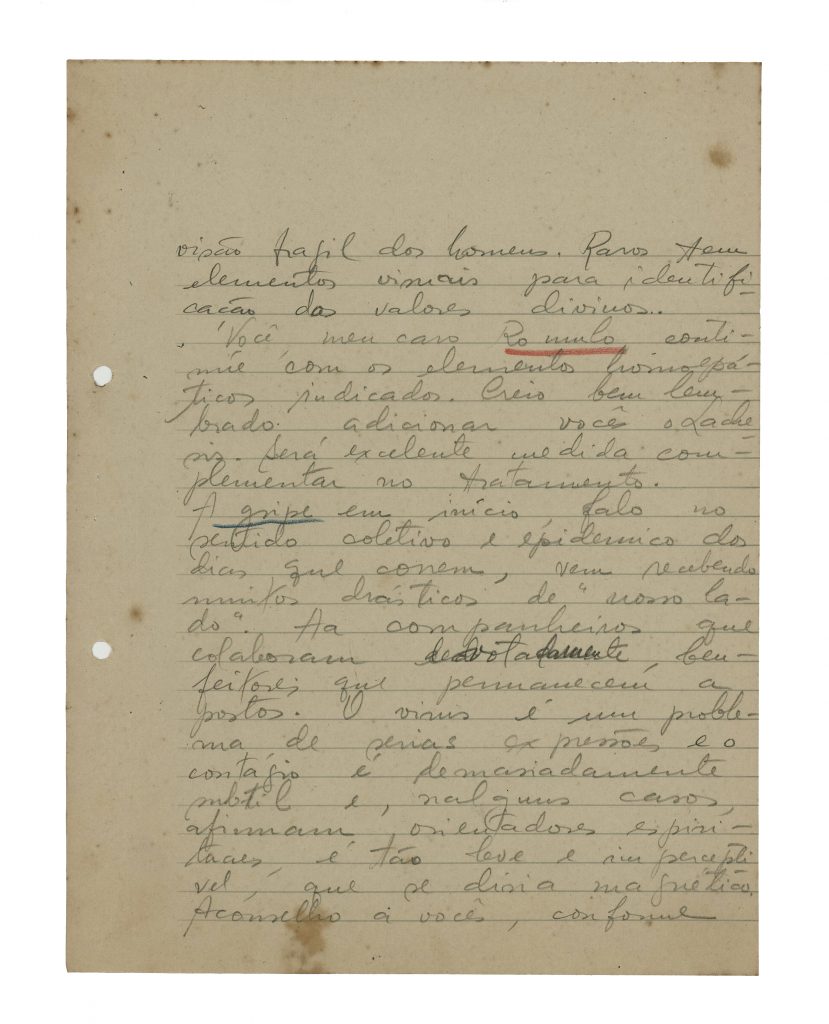 visão fragil dos homens. Raros tem
elementos visuais para identifi
cação dos valores divinos..
. Você meu caro Romulo, conti-
núe com os elementos homeopá-
ticos indicados. Creio bem lem-
brado adicionar você o Lache
sis. Será excelente medida com-
plementar no tratamento.
A gripe em início, falo no
sentido coletivo e epidemico dos
dias que correm, vem recebendo
muitos drásticos de "nosso la-
do". Ha companheiros que
colaboram devotadamente ben-
feitores que permanecem a
postos. O virus é um proble-
ma de serias expressões e o
contágio é demasiadamente
subtil e, nalguns casos,
afirmam, orientadores espiri-
tuaes, é tão leve e impercepti
vel, que se diria magnético.
Aconselho a vocês, conforme